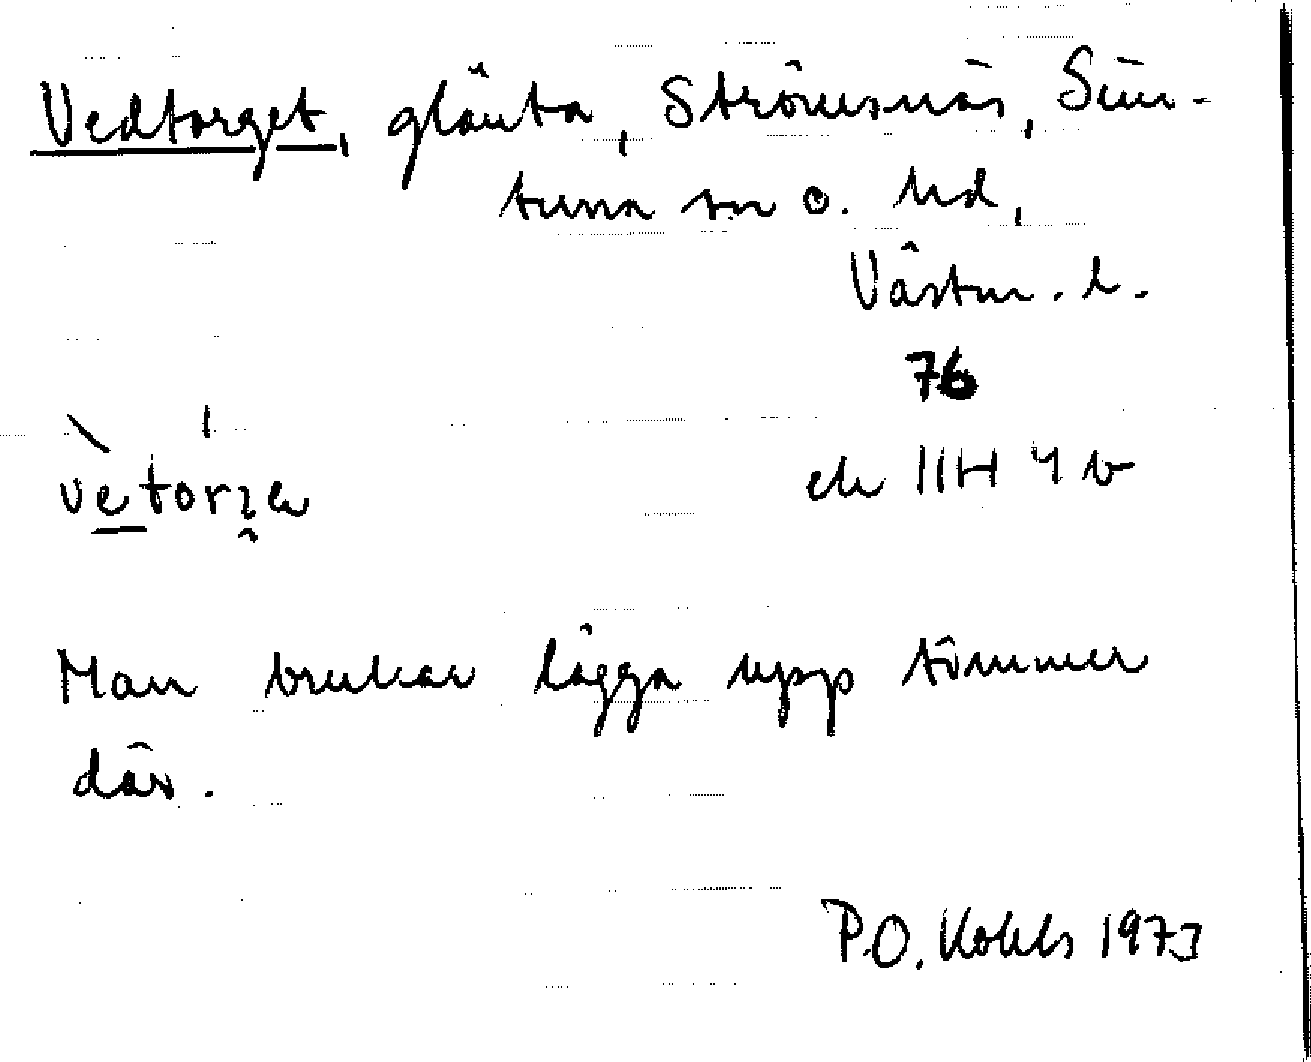 Vedtorget, glänta, Strömsnäs, Simtuna sn o. hd,
Västm. l.
76
ek 11H 4 b
vètorʒə
Man brukar lägga upp timmer
där.
P.O. Kohls 1973